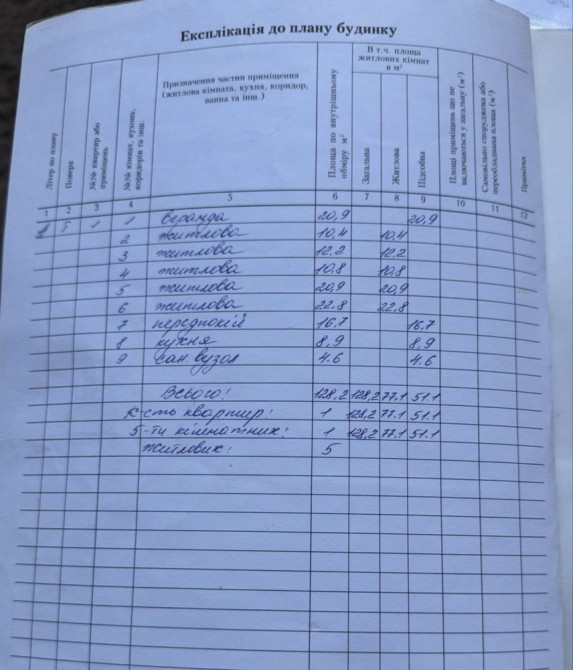 Експлікація до плану будинку
Літер по плану
Поверх
№№ квартир або приміщень
№№ кімнат, кухонь, коридорів та інш.
Призначення частин приміщення (житлова кімната, кухня, коридор, ванна та інш.)
Площа по внутрішньому обміру м²
В т.ч. площа житлових кімнат в м²
Загальна
Житлова
Підсобна
Площі приміщень що не включаються у загальну (м²)
Самовільно споруджена або переобладнана площа (м²)
Примітка
1 2 3 4 5 6 7 8 9 10 11 12
1 1 1 веранда 20,9 20,9
2 житлова 10,4 10,4
3 житлова 12,2 12,2
4 житлова 10,8 10,8
5 житлова 20,9 20,9
6 житлова 22,8 22,8
7 передпокій 16,7 16,7
8 кухня 8,9 8,9
9 сан вузол 4.6 4.6
Всього: 128,2 128,2 77,1 51.1
К-сть квартир: 1 128,2 77,1 51.1
5-ти кімнатних: 1 128,2 77,1 51.1
житлових: 5